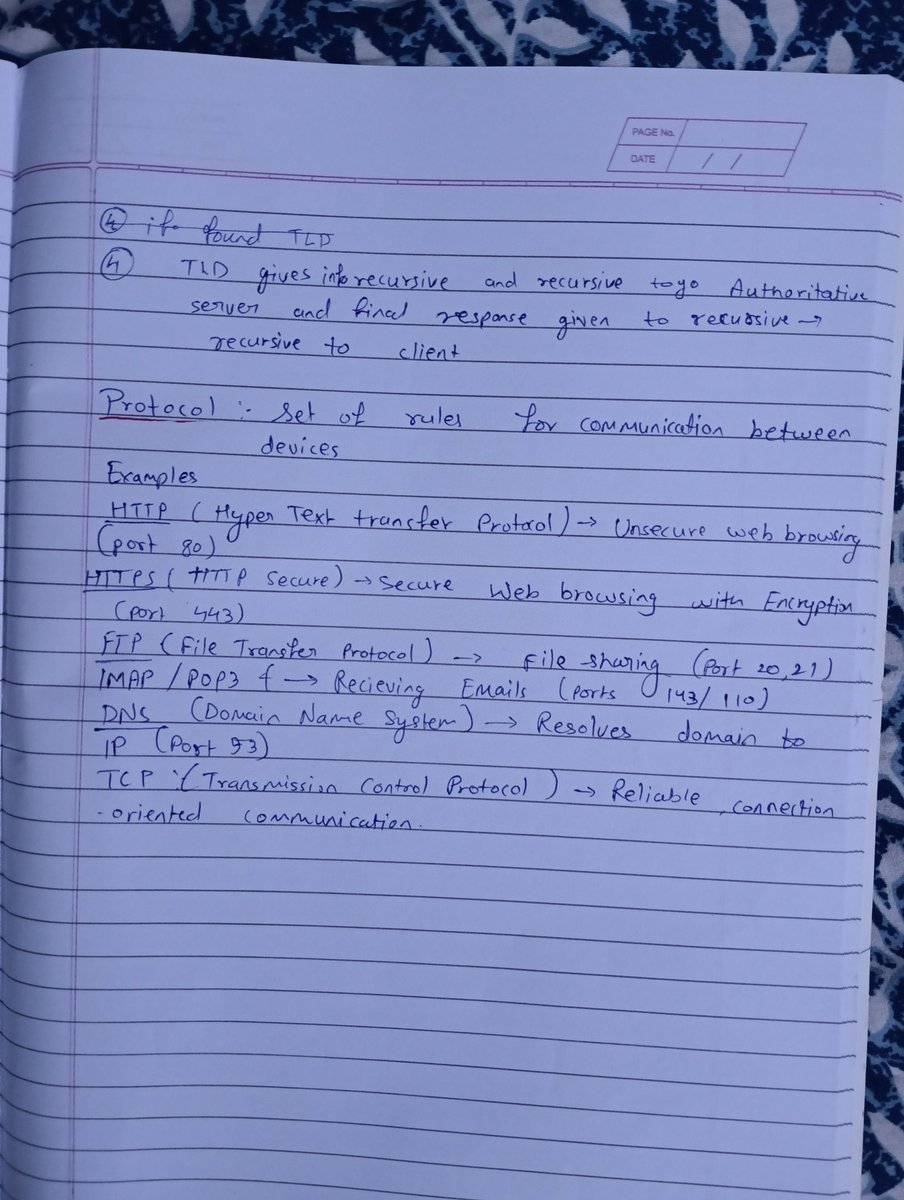 PAGE No.
DATE / /
④ if found TLD
④ TLD gives info recursive and recursive to go Authoritative
server and final response given to recursive →
recursive to client
Protocol :- Set of rules for communication between
devices
Examples
HTTP (Hyper Text transfer Protocol) → Unsecure web browsing
(port 80)
HTTPS ( HTTP Secure) → Secure Web browsing with Encryption
(Port 443)
FTP (File Transfer Protocol) → File sharing (Port 20,21)
IMAP / POP3 → Recieving Emails (Ports 143/110)
DNS (Domain Name System) → Resolves domain to
IP (Port 53)
TCP :(Transmission Control Protocol ) → Reliable, connection
-oriented communication.